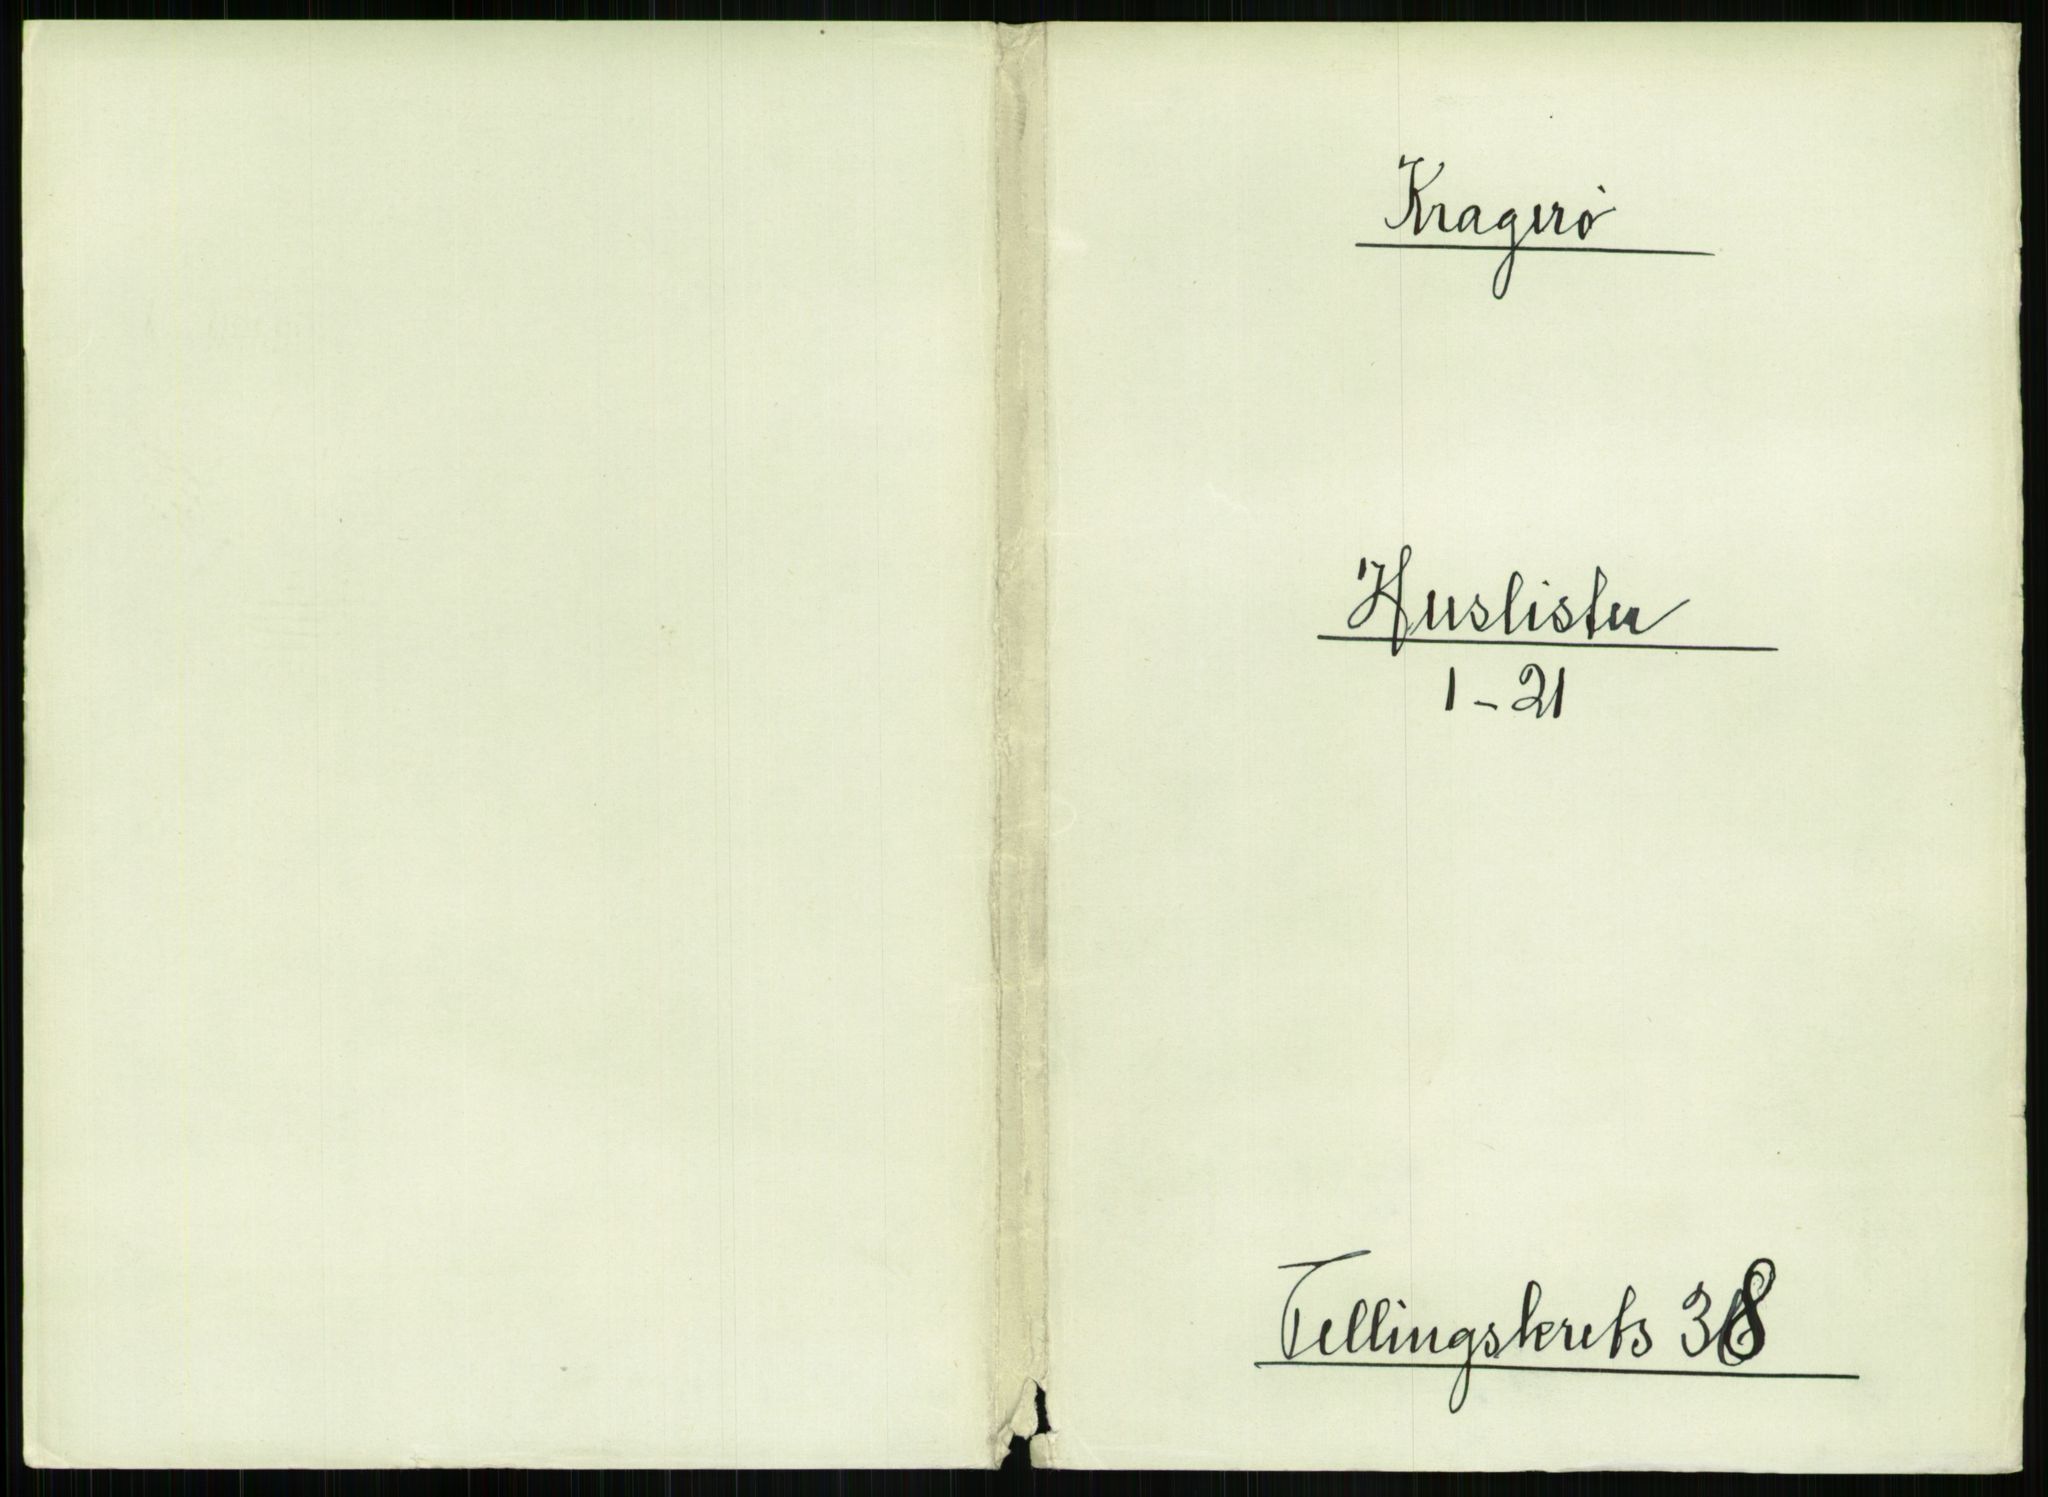 Kragerø
Huslister
1-21
Tellingskrets 38